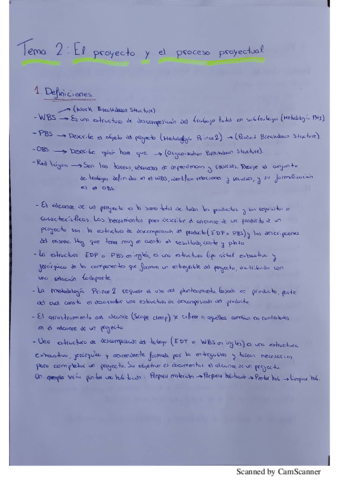 Tema 2: El proyecto y el proceso proyectual
1. Definiciones
(Work Breakdown Structure)
- WBS → Es una estructura de descomposición del trabajo total en subtrabajos (metodología PMI)
- PBS → Describe el objeto del proyecto (Metodología Prince2) → (Product Breakdown Structure)
- OBS → Describe quien hace que → (Organization Breakdown Structure)
- Red lógica → Son las tareas, ordenadas en
de trabajo definidos en el WBS, con
es el OBS
- El alcance de un proyecto es la suma total de todos los productos y sus requisitos o
características. Las herramientas para describir el alcance de un producto de un
proyecto son: la estructura de descomposición del producto (EDP o PBS) y las descripciones
del mismo. Hay que tener muy en cuenta el resultado, coste y plazo
- La estructura EDP = PBS en inglés, es una estructura exhaustiva y
jerárquica de los componentes que forman un entregable del proyecto
una relación
- La metodología Prince 2 requiere el uso del planteamiento basado en producto, parte
del cual consiste en desarrollar una estructura de descomposición del producto
- El de alcance (Scope creep) se refiere a aquellos cambios no controlados
en el alcance de un proyecto
- Una estructura de descomposición del trabajo (EDT = WBS en inglés) es una estructura
exhaustiva, jerárquica y descendente formada por los entregables y tareas necesarias
para completar un proyecto. Su objetivo es documentar el alcance de un proyecto
Un ejemplo sería pintar una habitación: Preparar materiales → Preparar habitación → Pintar hab. → Limpiar hab.
Scanned by CamScanner